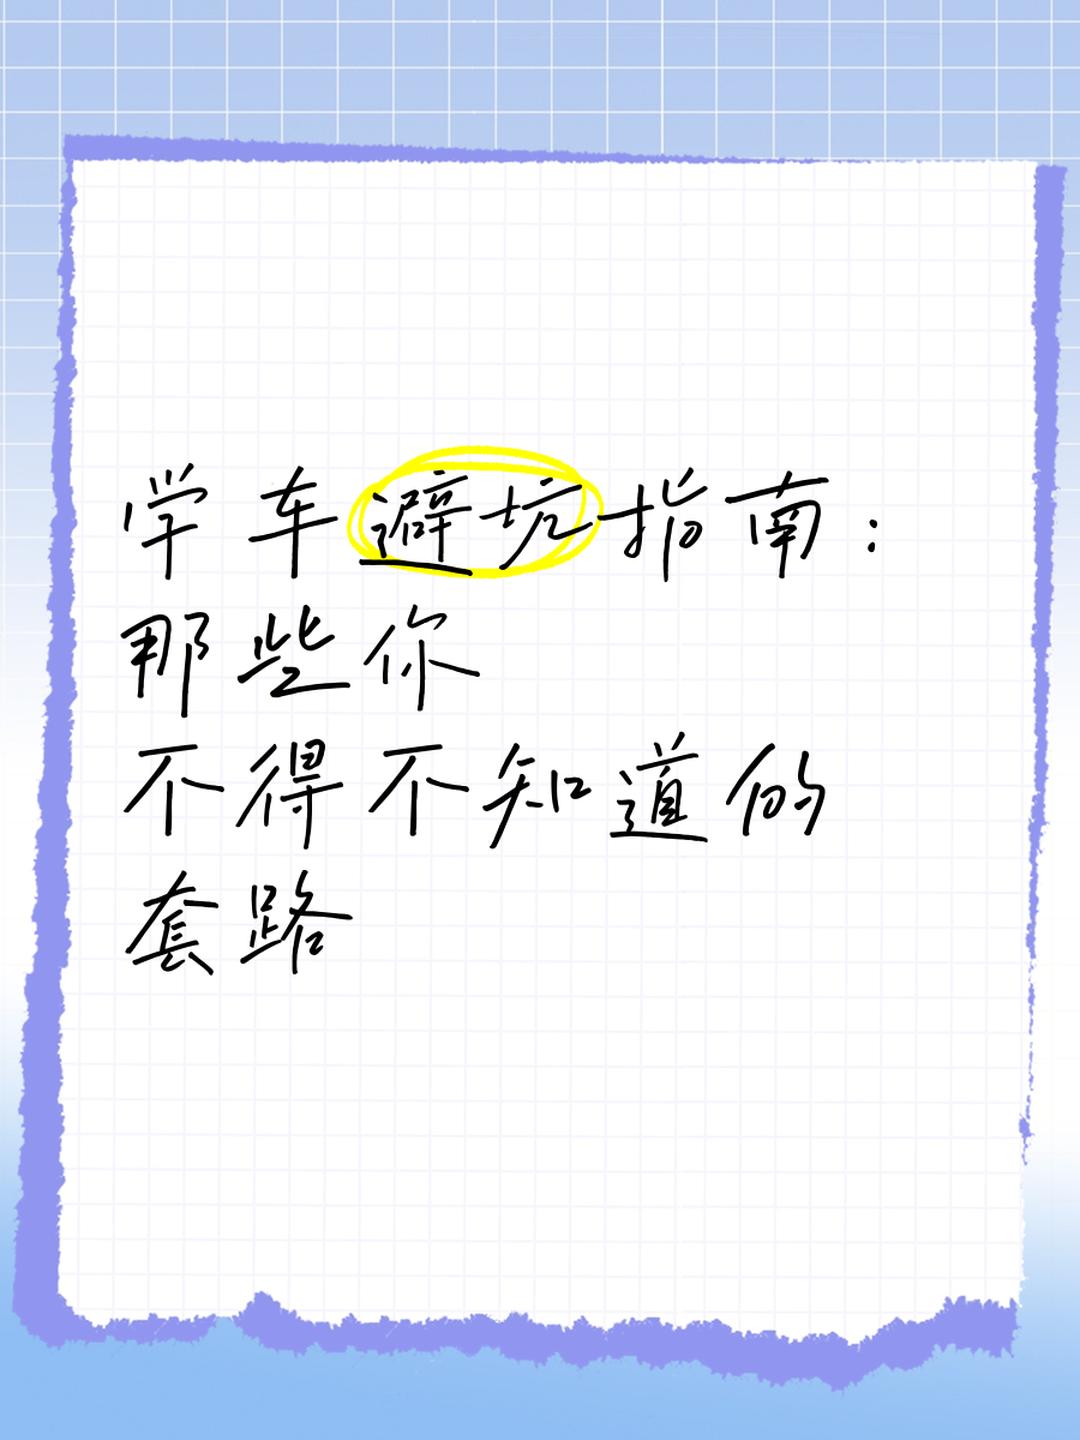 学车避坑指南：
那些你
不得不知道的
套路